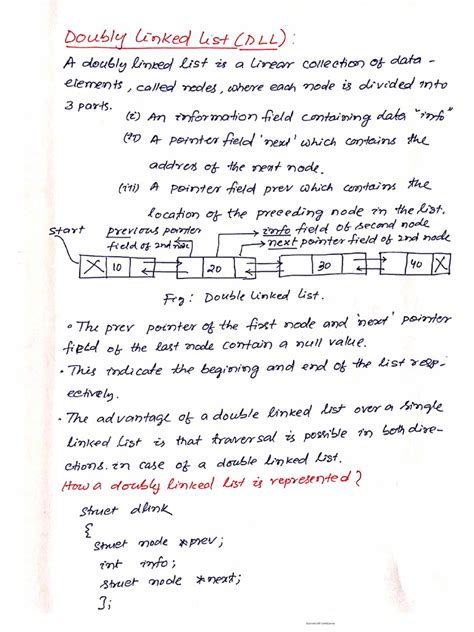 Doubly Linked List (DLL) :
A doubly linked list is a linear collection of data -
elements, called nodes, where each node is divided into
3 parts.
(i) An information field containing data "info"
(ii) A pointer field 'next' which contains the
address of the next node.
(iii) A pointer field prev which contains the
location of the preceding node in the list.
start previous pointer info field of second node
field of 2nd next pointer field of 2nd node
X 10 20 30 40 X
Fig: Double Linked List.
• The prev pointer of the first node and 'next' pointer
field of the last node contain a null value.
• This indicate the begining and end of the list resp-
ectively.
• The advantage of a double linked list over a single
linked list is that traversal is possible in both dire-
ctions. in case of a double linked list.
How a doubly linked list is represented?
struct dlink
{
struct node *prev;
int info;
struct node *next;
};